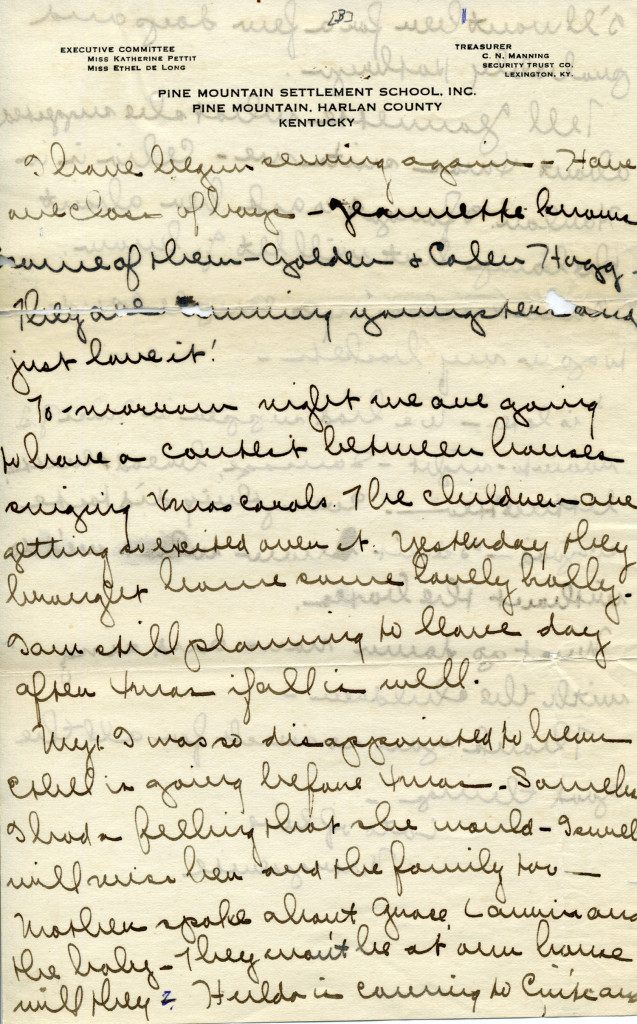 [B]
1
EXECUTIVE COMMITTEE
MISS KATHERINE PETTIT
MISS ETHEL DE LONG
TREASURER
C. N. MANNING
SECURITY TRUST CO.
LEXINGTON, KY.
PINE MOUNTAIN SETTLEMENT SCHOOL, INC.
PINE MOUNTAIN, HARLAN COUNTY
KENTUCKY
I have begun sewing again - Have
one class of boys - Jeannette knows
some of them - Golden & Calen Hogg -
They are cunning youngsters and
just love it!
To-morrow night we are going
to have a contest between houses
singing Xmas carols. The children are
getting so exited over it. Yesterday they
brought home some lovely holly.
I am still planning to leave day
after Xmas if all is well.
My! I was so disappointed to hear
Ethel is going before Xmas. Someho
I had a feeling that she would - I
will miss her and the family too -
Mother spoke about Grace and
the baby - They won't be at our house
will they? Hulda is coming to